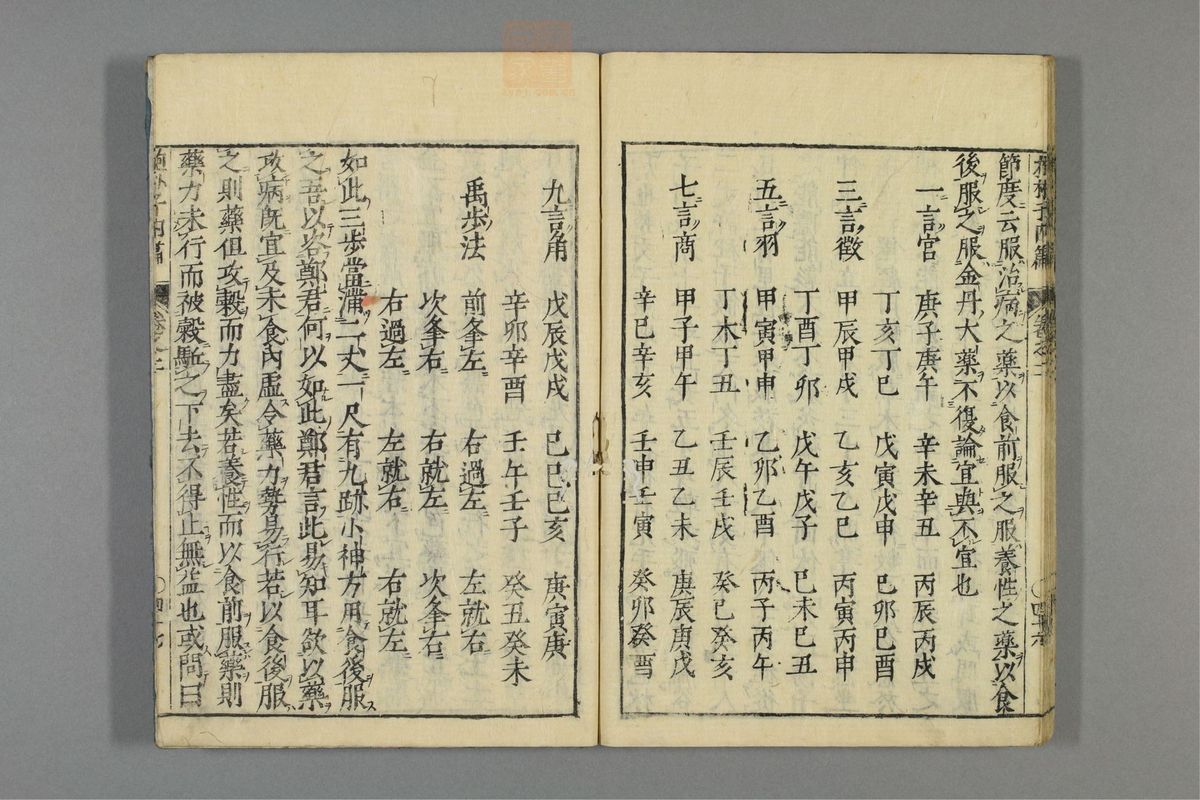 抱朴子內篇 卷之二 〇四十六
節度云服治病之藥以食前服之服養性之藥以食
後服之服金丹大藥不復論宜與不宜也
一言宮 庚子庚午 辛未辛丑 丙辰丙戌
丁亥丁巳 戊寅戊申 己卯己酉
三言徵 甲辰甲戌 乙亥乙巳 丙寅丙申
丁酉丁卯 戊午戊子 己未己丑
五言羽 甲寅甲申 乙卯乙酉 丙子丙午
丁未丁丑 壬辰壬戌 癸巳癸亥
七言商 甲子甲午 乙丑乙未 庚辰庚戌
辛巳辛亥 壬申壬寅 癸卯癸酉
九言角 戊辰戊戌 己巳己亥 庚寅庚
辛卯辛酉 壬午壬子 癸丑癸未
禹步法 前夆左 右過左 左就右
次夆右 右就左 次夆右
右過左 左就右 右就左
如此三步當滿二丈一尺有九跡小神方用食後服
之吾以咨鄭君何以如此鄭君言此易知耳欲以藥
攻病既宜及未食內虛令藥力勢易行若以食後服
之則藥但攻穀而力盡矣若養性而以食前服藥則
藥力未行而被穀駈之下去不得止無益也或問曰
抱朴子內篇 卷之二 〇四十七